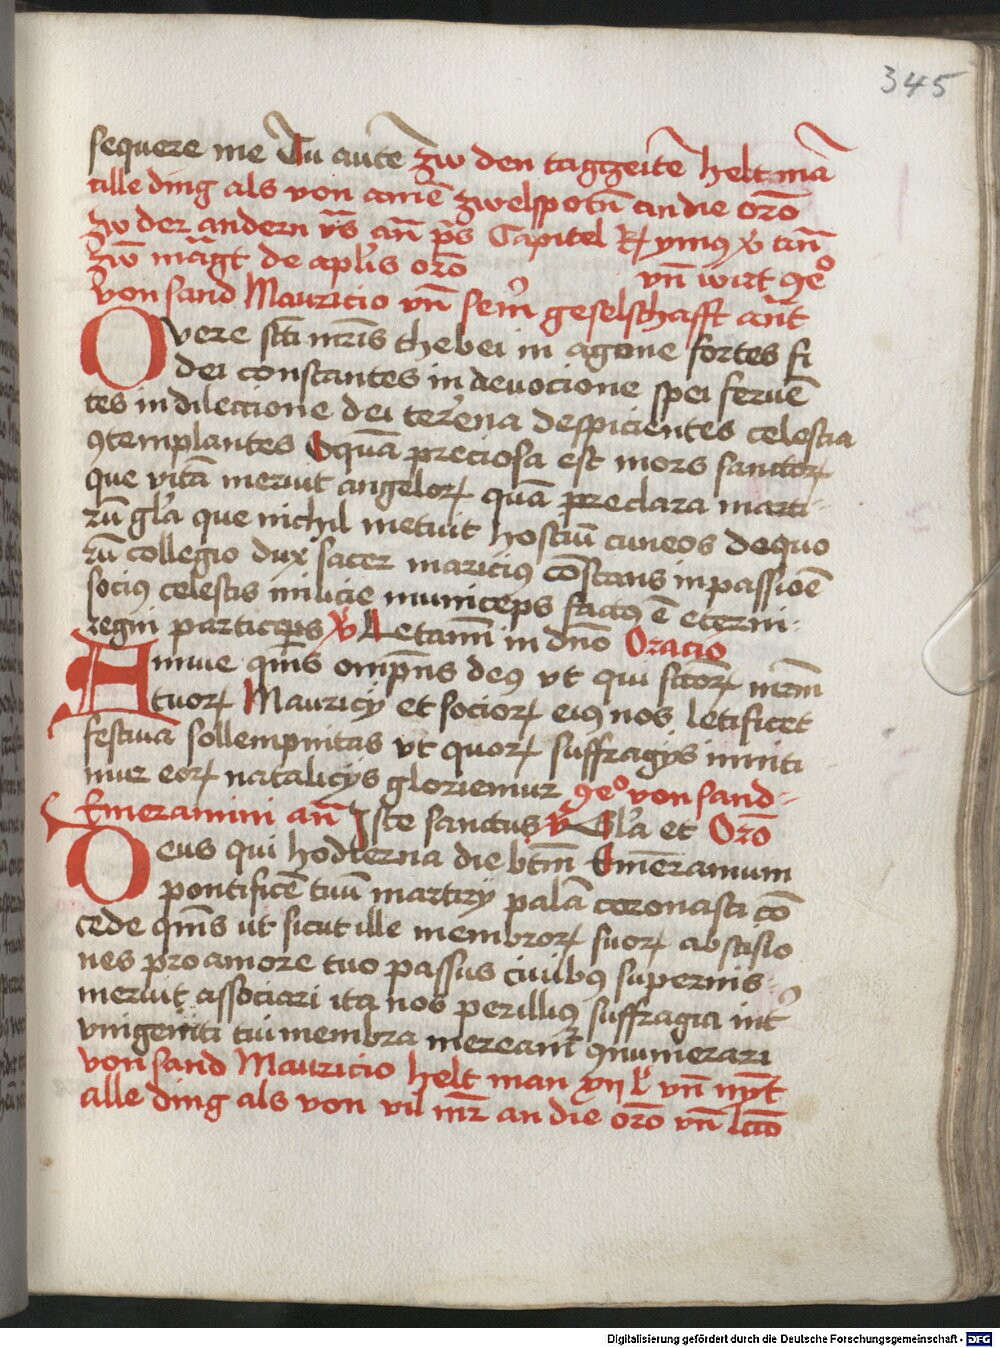 345
sequere me Tu autē zw den tagzeitē helt mā
alle ding als von ainē zwelfpotn̄ an die orō
zw der andern vs̄ an̄ ps̄ Capitel R ymꝰ v̄ an̄
zw̄ mag̅t de aplis orō vn̄ wirt ꝯeº
von sand Mauricio vn̄ seīn geselschafft an̄t
O vere scti mr̄is thebei in agone fortes fi
dei constantes in deuocione spei feruē
tes in dileccione dei terrena despicientes celestia
ꝯtemplantes O quā preciosa est mors sanctoꝝ
que vitā meruit angeloꝝ quā preclara marti-
rū gla que nichil metuit hostiū cuneos de quo
rū collegio dux sacer mauriciꝰ cōstans in passiōe
sociꝰ celestis milicie municeps factꝰ ē eterni-
regni particeps v̄ Letamī in dnō Oracio
Annue qms̄ omp̄ns deꝰ vt qui sctōꝝ mr̄m
tuoꝝ Mauricÿ et socioꝝ eiꝰ nos letificet
festiua sollempnitas vt quoꝝ suffragÿs inniti
mur eoꝝ natalicÿs gloriemur ꝯeº von sand-
Emerammi an̄ Iste sanctus v̄ Gla et Orō
Deus qui hodierna die btm̄ Emēramum
pontificē tuū martirÿ palā coronasti cō
cede qms̄ ut sicut ille membroꝝ suoꝝ abscisio
nes pro amore tuo passus ciuibꝰ supernis-
meruit associari ita nos per illiꝰ suffragia int̄
vnigeniti tui membra mereamr̄ ꝯnumerari
von sand Mauricio helt man xij lc̄ vn̄ nym̄t
alle ding als von vil mr̄ an die orō vn̄ lcciō
Digitalisierung gefördert durch die Deutsche Forschungsgemeinschaft - DFG